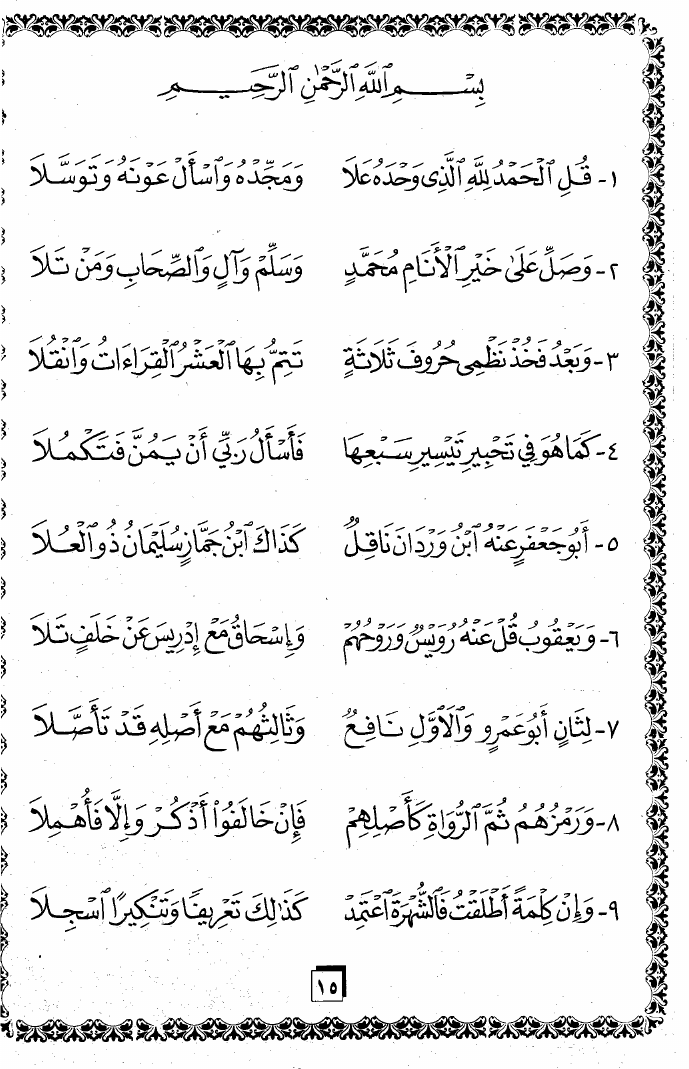 بِسْمِ ٱللَّهِ ٱلرَّحْمَٰنِ ٱلرَّحِيمِ
١- قُلِ ٱلْحَمْدُ لِلَّهِ ٱلَّذِى وَحْدَهُ عَلَا وَمَجِّدْهُ وَٱسْأَلْ عَوْنَهُ وَتَوَسَّلَا
٢- وَصَلِّ عَلَىٰ خَيْرِ ٱلْأَنَامِ مُحَمَّدٍ وَسَلِّمْ وَآلٍ وَٱلصِّحَابِ وَمَنْ تَلَا
٣- وَبَعْدُ فَخُذْ نَظْمِى حُرُوفَ ثَلَاثَةٍ تَتِمُّ بِهَا ٱلْعَشْرُ ٱلْقِرَاءَاتُ وَٱنْقُلَا
٤- كَمَا هُوَ فِي تَحْبِيرِ تَيْسِيرِ سَبْعِهَا فَأَسْأَلُ رَبِّي أَنْ يَمُنَّ فَتَكْمُلَا
٥- أَبُو جَعْفَرٍ عَنْهُ ٱبْنُ وَرْدَانَ نَاقِلٌ كَذَاكَ ٱبْنُ جَمَّازٍ سُلَيْمَانُ ذُو ٱلْعُلَا
٦- وَيَعْقُوبُ قُلْ عَنْهُ رُوَيْسٌ وَرَوْحُهُمْ وَإِسْحَاقُ مَعْ إِدْرِيسَ عَنْ خَلَفٍ تَلَا
٧- لِثَانٍ أَبُو عَمْرٍو وَٱلَاوَّلِ نَافِعٌ وَثَالِثُهُمْ مَعْ أَصْلِهِ قَدْ تَأَصَّلَا
٨- وَرَمْزُهُمُ ثُمَّ ٱلرُّوَاةِ كَأَصْلِهِمْ فَإِنْ خَالَفُوا أَذْكُرْ وَإِلَّا فَأُهْمِلَا
٩- وَإِنْ كِلْمَةً أَطْلَقْتُ فَٱلشُّهْرَةَ ٱعْتَمِدْ كَذَٰلِكَ تَعْرِيفًا وَتَنْكِيرًا ٱسْجِلَا
١٥